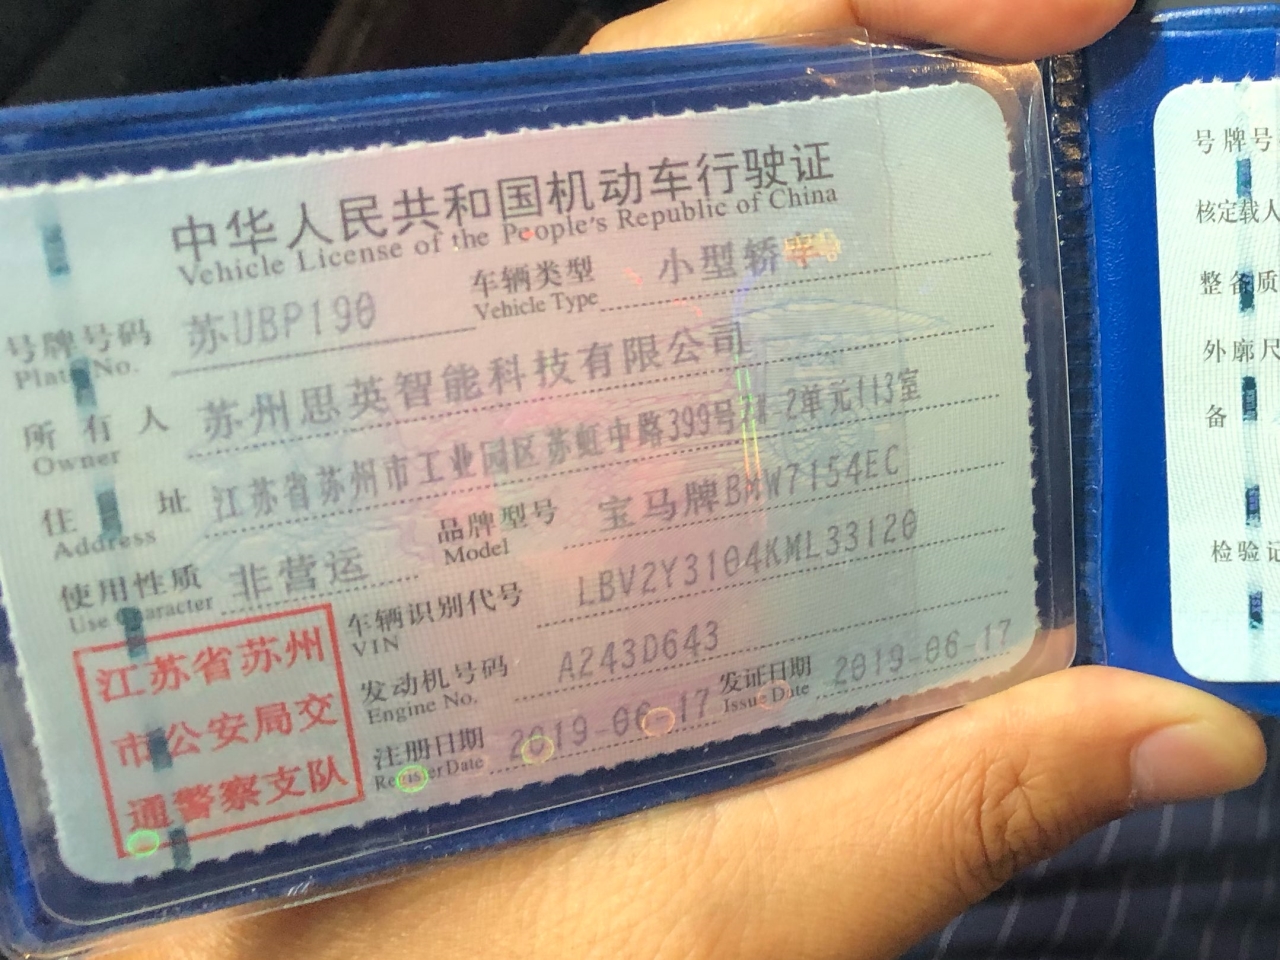 中华人民共和国机动车行驶证
Vehicle License of the People's Republic of China
号牌号码 苏UBP190 车辆类型 小型轿车
Plate No. Vehicle Type
所有人 苏州思英智能科技有限公司
Owner
住址 江苏省苏州市工业园区苏虹中路399号 2单元113室
Address
使用性质 非营运 品牌型号 宝马牌BMW7154EC
Use Character Model
车辆识别代号 LBV2Y3104KML33120
VIN
发动机号码 A243D643
Engine No.
注册日期 2019-06-17 发证日期 2019-06-17
Register Date Issue Date
江苏省苏州
市公安局交
通警察支队
号牌号
核定载人
整备质
外廓尺
备
检验记